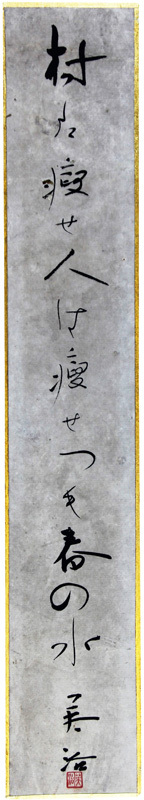 村は瘦せ人は瘦せつも春の水
英治